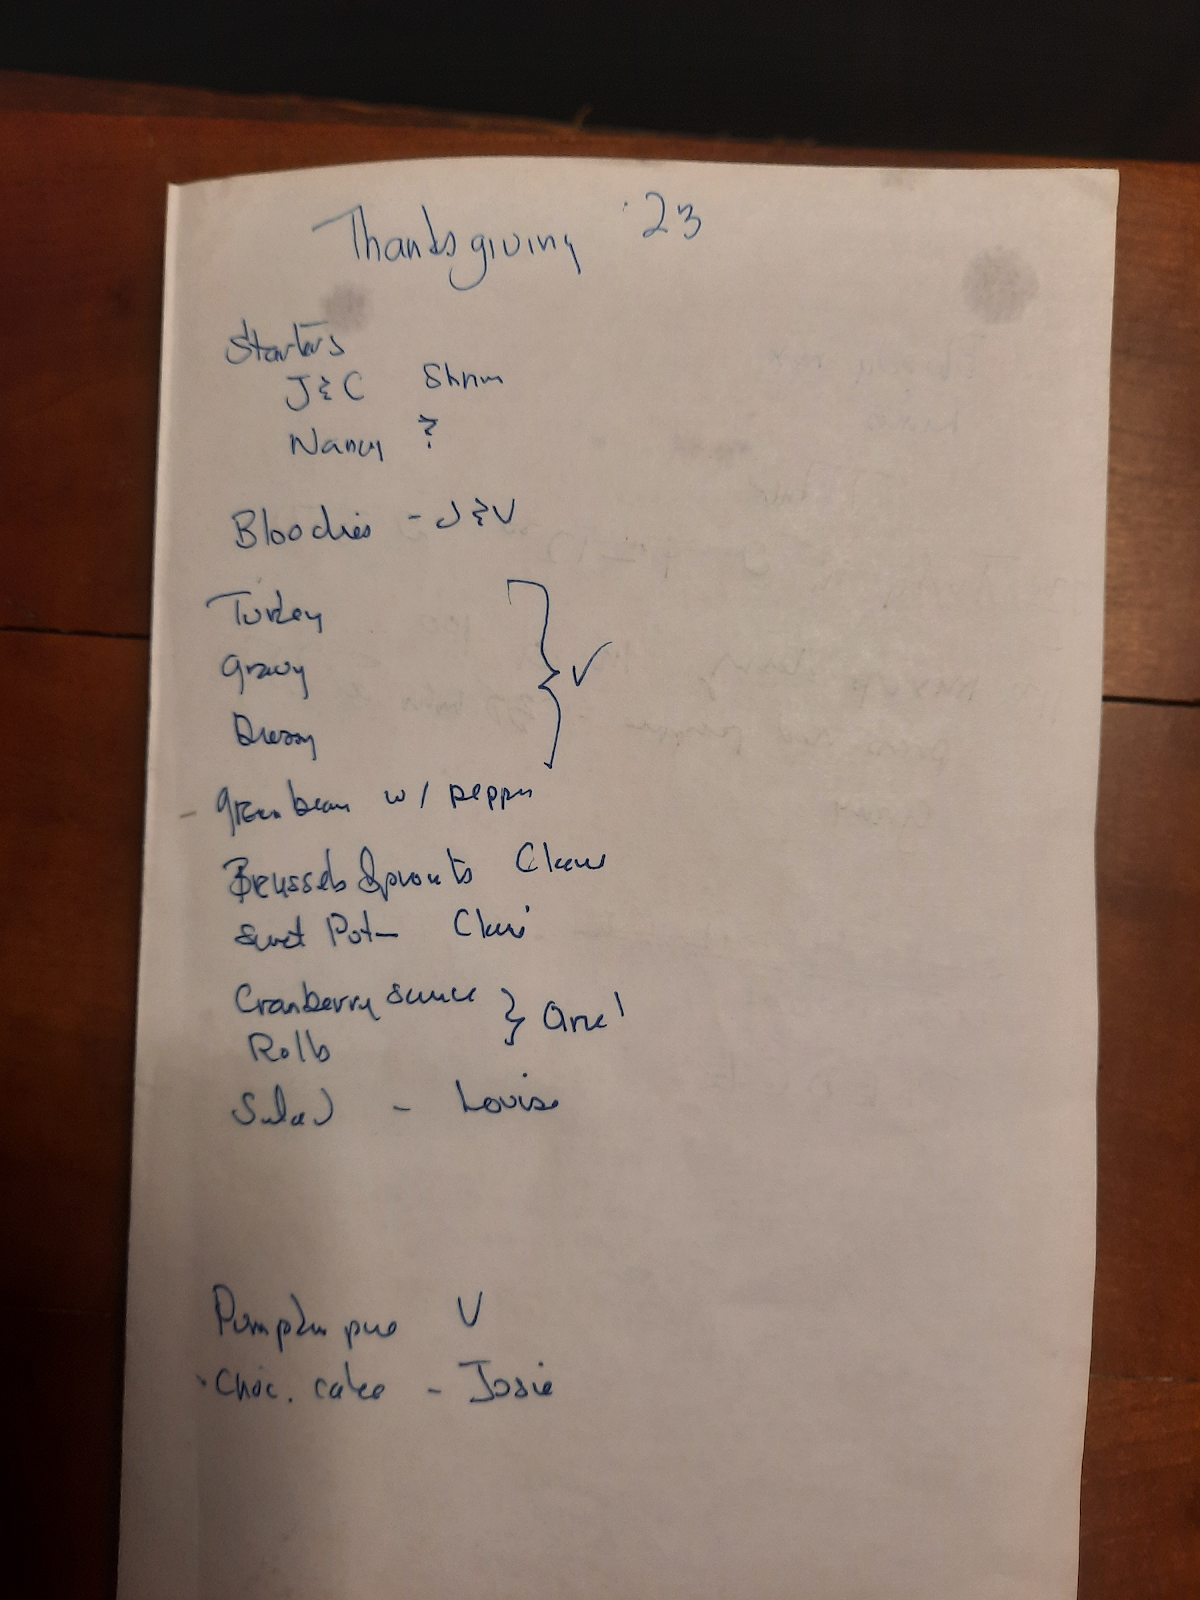 Thanksgiving '23
Starters
J & C Shrim
Nancy ?
Bloodies - J & V
Turkey
Gravy
V
Green bean w/ pepper
Brussels Sprouts Claire
Sweet Pot— Claire
Cranberry sauce
Rolls
Salad - Louise
Pumpkin pie V
Choc. cake - Josie